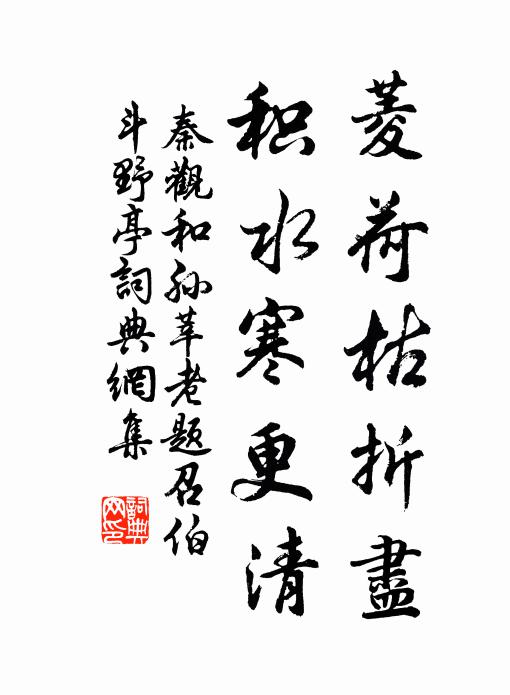 菱荷枯折盡
积水寒更清
秦觀和孙莘老题召伯
斗野亭詞典網集
詞典
网印